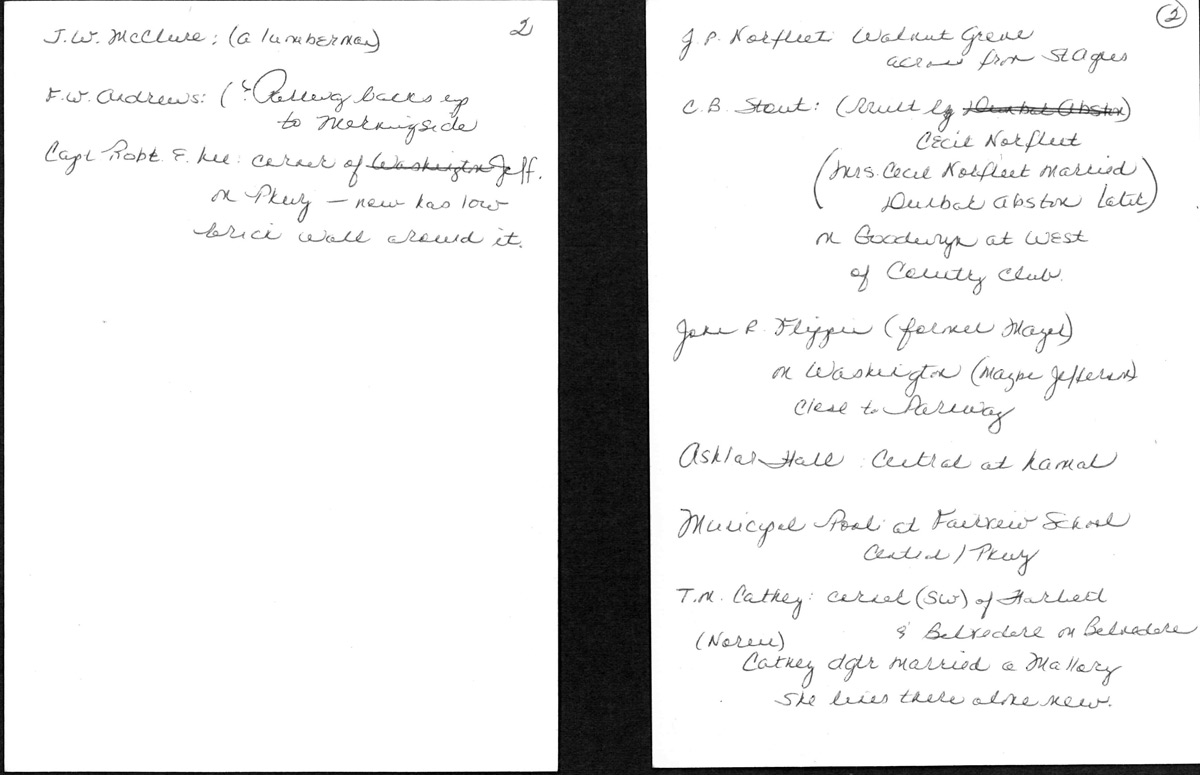 2
J.W. McClure: (a lumberman)
F.W. Andrews: ( backs up
to Morningside
Capt Robt. E. Lee: corner of Washington Jeff.
on Pkwy – now has low
brick wall around it.
2
J P. Norfleet: Walnut Grove
across from St Agnes
C.B. Stout: (Built by Dunbar Abston)
Cecil Norfleet
(Mrs. Cecil Norfleet married
Dunbar Abston later)
on Goodwyn at West
of Country Club.
John R. Flippin (former Mayor)
on Washington (maybe Jefferson)
close to Parkway
Ashlar Hall: Central at Lamar
Municipal Pool: at Fairview School
Central / Pkwy
T.M. Cathey: corner (SW) of Harbert
& Belvedere on Belvedere
(Noreen)
Cathey dgtr married a Mallory
She lives there alone now.